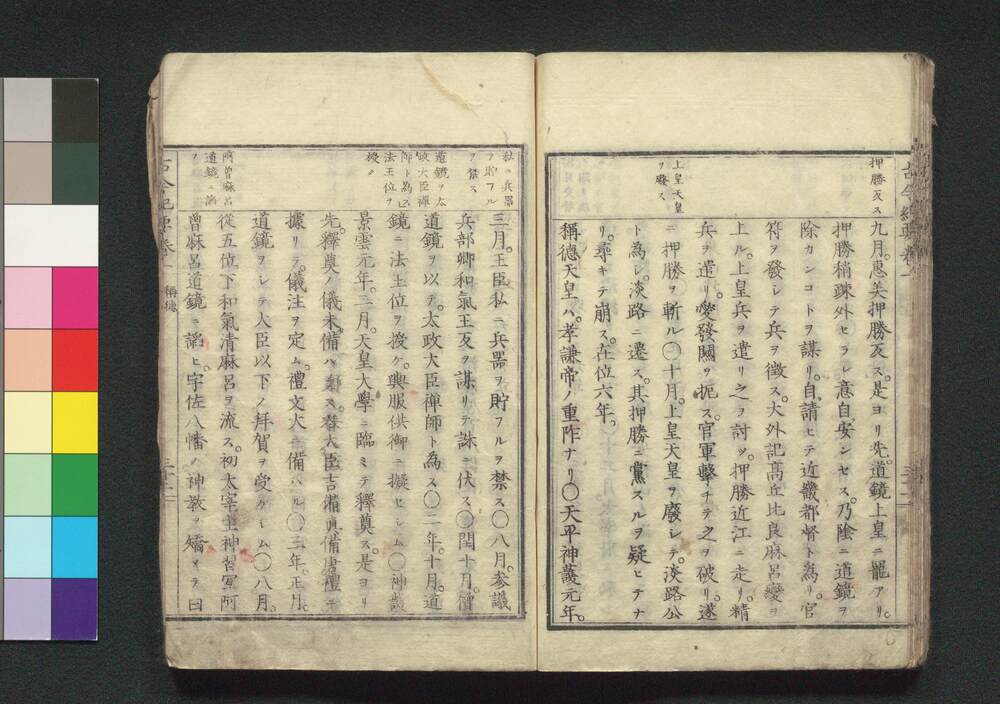 押勝反ス
九月。恵美押勝反ス。是ヨリ先。道鏡上皇ニ寵アリ。
押勝稍疎外セラレ意自安ンセス。乃陰ニ道鏡ヲ
除カンコトヲ謀リ。自請ヒテ近畿都督ト為リ。官
符ヲ發レテ兵ヲ徴ス。大外記高丘比良麻呂變ヲ
上ル。上皇兵ヲ遣リ之ヲ討ツ。押勝近江ニ走リ。精
兵ヲ遣リ。愛發關ヲ扼ス。官軍擊チテ之ヲ破リ。遂
上皇天皇
ヲ廢ス
ニ押勝ヲ斬ル〇十月。上皇天皇ヲ廢レテ。淡路公
ト為レ。淡路ニ遷ス。其押勝ニ黨スルヲ疑ヒテナ
リ。尋キテ崩ス。在位六年。
稱德天皇ハ。孝謙帝ノ重祚ナリ〇天平神護元年。
私ニ兵器
ヲ貯フル
ヲ禁ス
三月。王臣私ニ兵器ヲ貯フルヲ禁ス〇八月。参議
兵部卿和氣王反ヲ謀リテ誅ニ伏ス〇閏十月。僧
道鏡ヲ太
政大臣禅
師ト為レ
法王位ヲ
授ク
道鏡ヲ以テ。太政大臣禅師ト為ス〇二年。十月。道
鏡ニ法王位ヲ授ケ。輿服供御ニ擬セシム〇神護
景雲元年。二月。天皇大學ニ臨ミテ釋奠ス。是ヨリ
先。釋奠ノ儀未備ハ
據リテ。儀注ヲ定ム。禮文大ニ備ハル〇三年。正月。
道鏡ヲレテ大臣以下ノ拜賀ヲ受ケシム〇八月。
從五位下和氣清麻呂ヲ流ス。初太宰主神習宜阿
阿曽麻呂
道鏡ニ
曽麻呂道鏡ニ諂ヒ。宇佐八幡ノ神教ヲ矯メテ曰